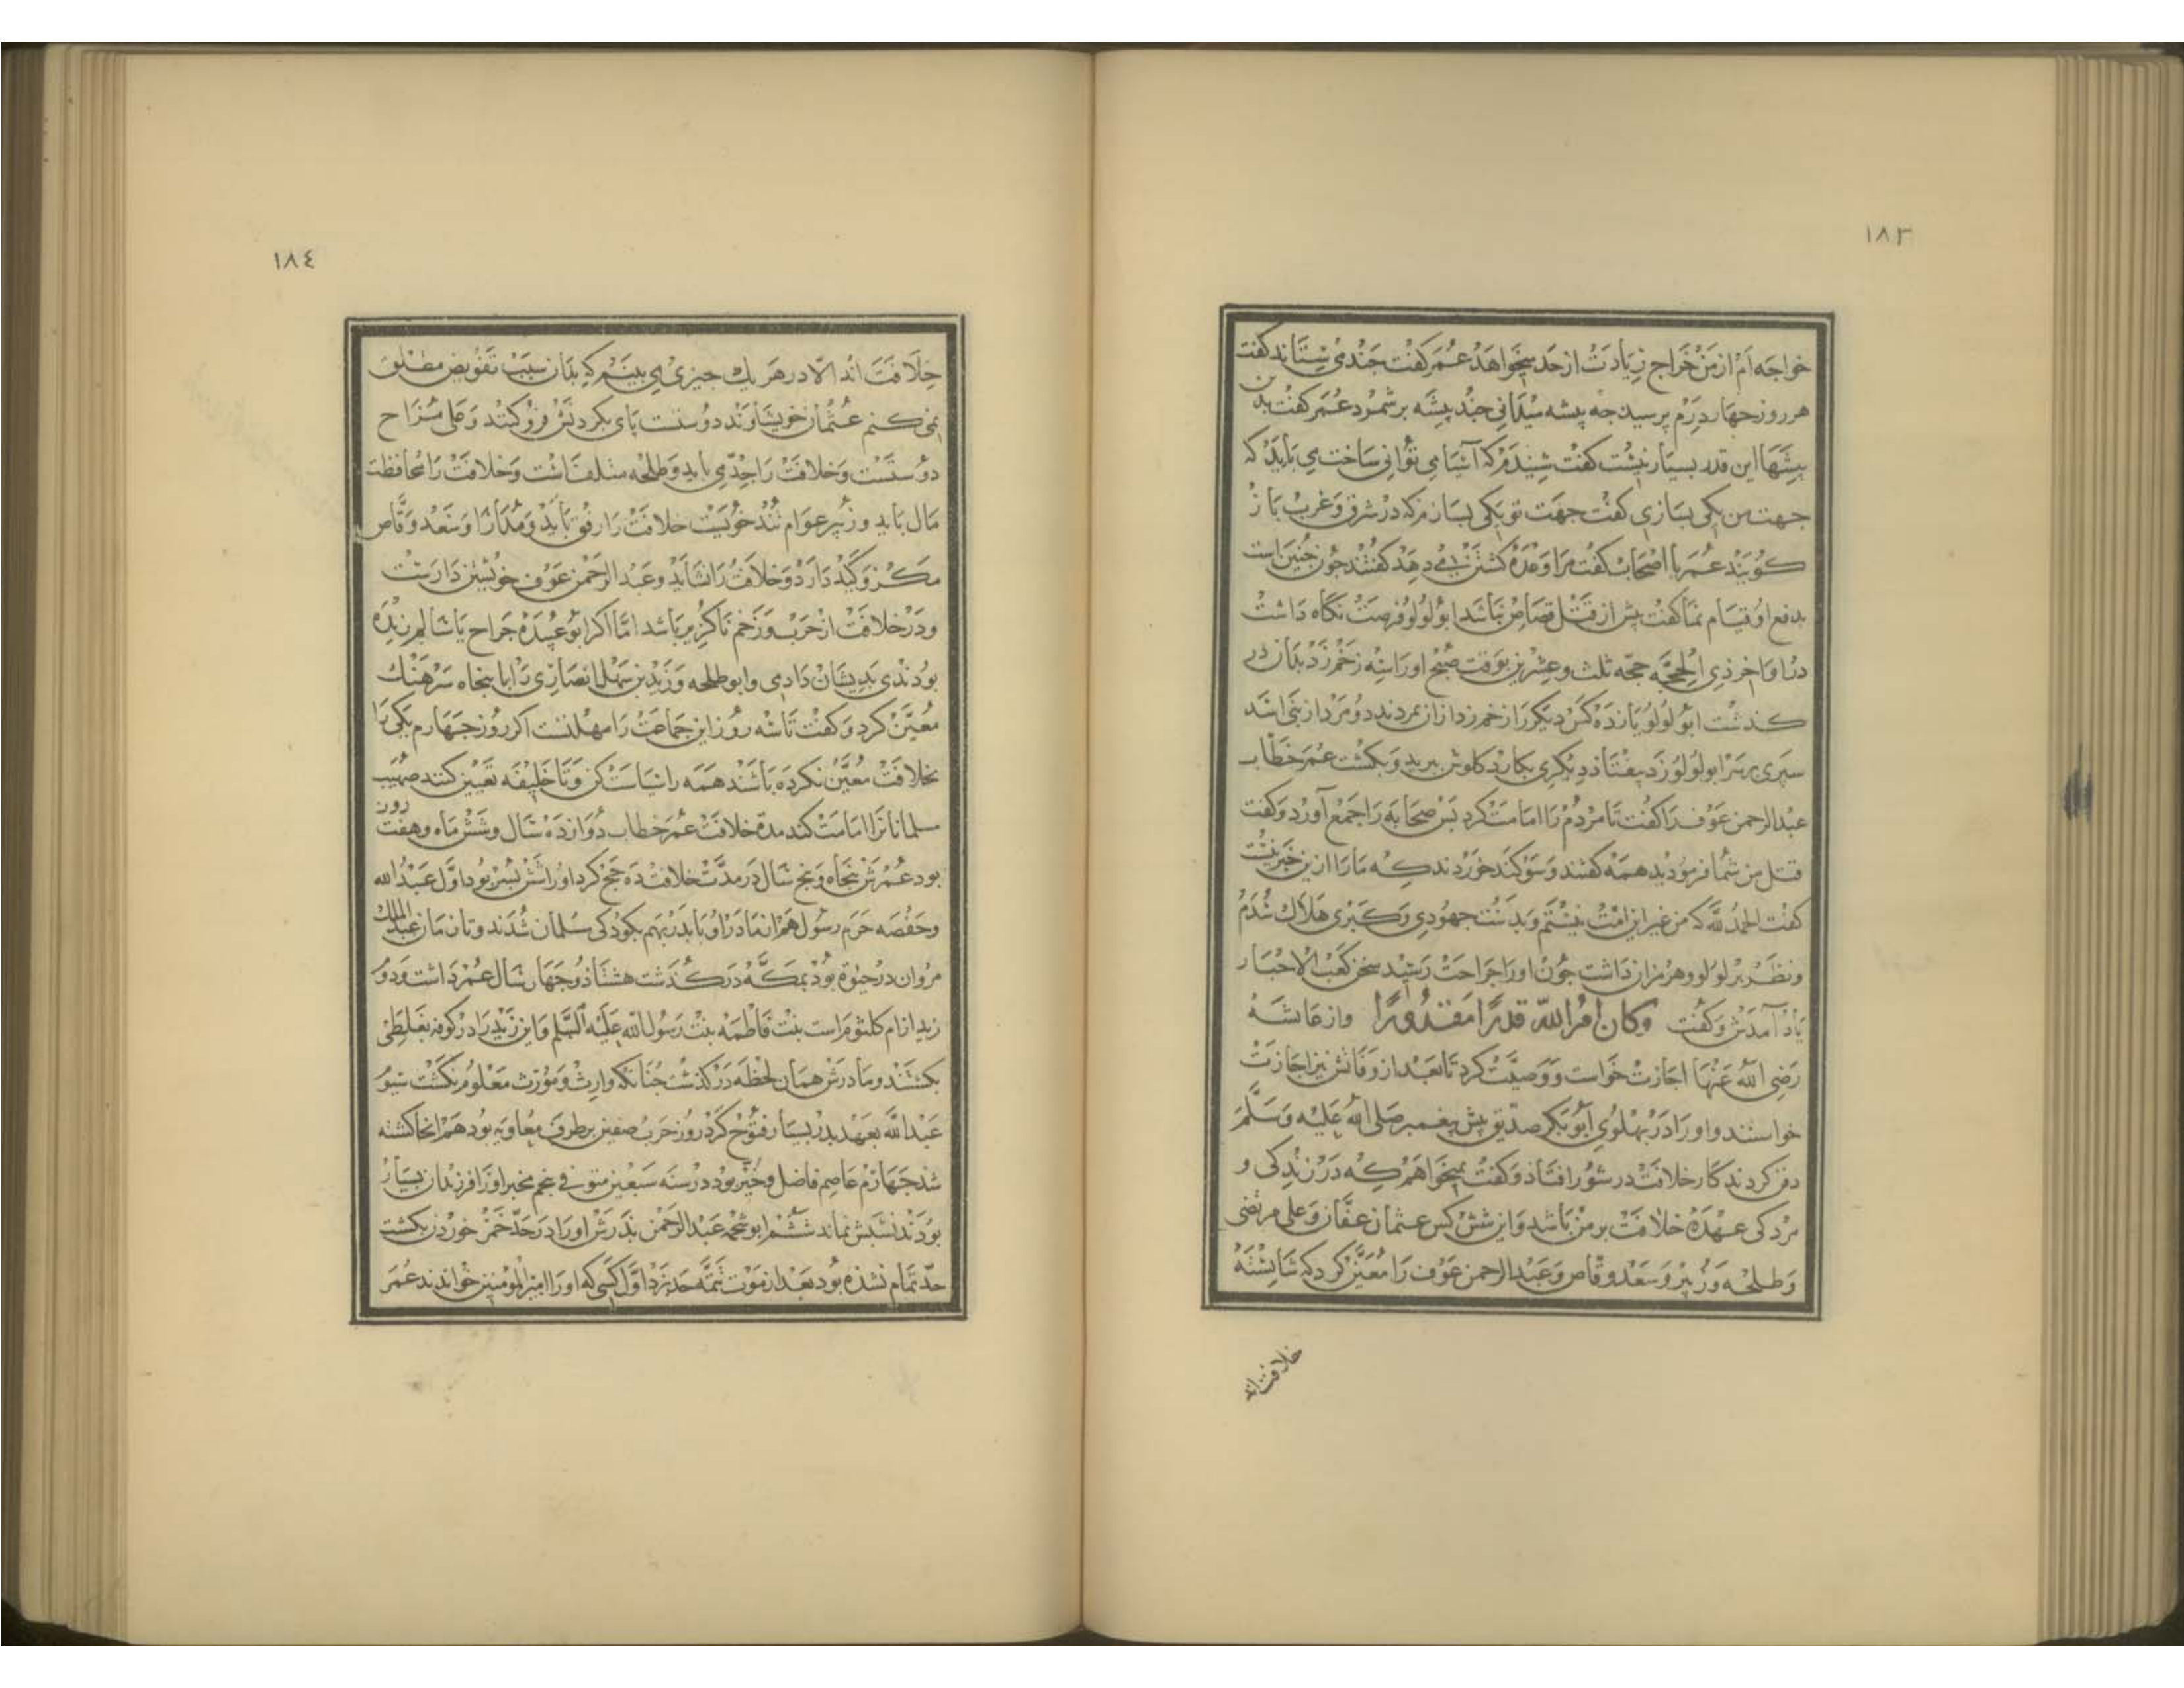 ١٨٣
خواجه ام از من خراج زیادت از حد میخواهد عمر کفت چند می ستاند کفت
هر روز چهار درم پرسید چه پیشه میدانی چند پیشه برشمرد عمر کفت بدین
پیشها این قدر بسیار نیست کفت شنیدم که آسیا می توانی ساخت می باید که
جهت من یکی بسازی کفت جهت تو یکی بسازم که در شرق و غرب باز
کویند عمر با اصحاب کفت مرا وعده کشتن می دهد کفتند چون چنین است
بدفع او قیام نما کفت پیش از قتل قصاص نباشد ابولولو فرصت نکاه داشت
در اواخر ذی الحجه حجه ثلث و عشرین بوقت صبح اورا سه زخم زد بدان در
کذشت ابولولو یازده کس دیکر را زخم زد ازان بمردند دو مرد از بنی اسد
سپری بر سر ابولولو زد بیفتاد دیکری بکارد کلوش ببرید و بکشت عمر خطاب
عبدالرحمن عوف را کفت تا مردم را امامت کرد پس صحابه را جمع آورد و کفت
قتل من شما فرمودید همه کفتند و سوکند خوردند که مارا ازین خبر نیست
کفت الحمد لله که من غیر این امت نیستم و بدست جهودی و کبری هلاک شدم
ونظر بر لولو و هرمزان داشت چون اورا جراحت رسید سخن کعب الاحبار
یاد آمدش و کفت وکان امر الله قدرا مقدورا وازعایشه
رضی الله عنها اجازت خواست و وصیت کرد تا بعد از وفاتش نیز اجازت
خواستند و اورا در پهلوی ابوبکر صدیق پیش پیغمبر صلی الله علیه وسلم
دفن کردند کار خلافت در شورا افتاد و کفت نمیخواهم که در زندکی و
مردکی عهده خلافت بر من باشد و این شش کس عثمان عفان و علی مرتضی
وطلحه و زبیر و سعد وقاص و عبدالرحمن عوف را معین کرد که شایسته
خلافت اند
١٨٤
خلافت اند الا در هر یک چیزی می بینم که بدان سبب تفویض مطلق
نمی کنم عثمان خویشاوند دوستست پای بکردنش فرو کنند و علی مزاح
دوستست و خلافت را جدی باید و طلحه متلف است و خلافت را محافظت
مال باید و زبیر عوام تند خویست خلافت را رفق باید و مدارا و سعد وقاص
مکر و کید دارد و خلافت را نشاید و عبدالرحمن عوف خویشتن دارست
ودر خلافت از حرب و زخم ناکزیر باشد اما اکر ابو عبیده جراح یا سالم زنده
بودندی بدیشان دادمی و ابوطلحه و زید بن سهل انصاری را با پنجاه سرهنک
معین کرد و کفت تا سه روز این جماعت را مهلتست اکر روز چهارم یکی را
بخلافت معین نکرده باشند همه را سیاست کن و تا خلیفه تعیین کنند صهیب
مسلمانانرا امامت کند مدة خلافت عمر خطاب دوازده سال و شش ماه و هفت روز
بود عمرش پنجاه و پنج سال در مدت خلافت ده حج کرد اورا شش پسر بود اول عبدالله
وحفصه حرم رسول هم از مادر او با پدر بهم بکودکی مسلمان شدند و تا زمان عبدالملک
مروان در حیوة بود بمکه در کذشت هشتاد و چهار سال عمر داشت و دوم
زید از ام کلثوم است بنت فاطمه بنت رسول الله علیه السلم و این زید را در کوفه بغلطی
بکشتند و مادرش همان لحظه در کذشت چنانکه وارث و مورث معلوم نکشت سیوم
عبدالله بعهد پدر بسیار فتوح کرد روز حرب صفین بر طرف معاویه بود هم انجا کشته
شد چهارم عاصم فاضل و خیر بود در سنه سبعین متوفی پنجم مخبر اورا فرزندان بسیار
بودند نسبش نماند ششم ابو شحمه عبدالرحمن پدرش اورا در حد خمر خوردن بکشت
حد تمام نشده بود بعد از موت تتمه حد بزد اول کسی که اورا امیر المومنین خواندند عمر